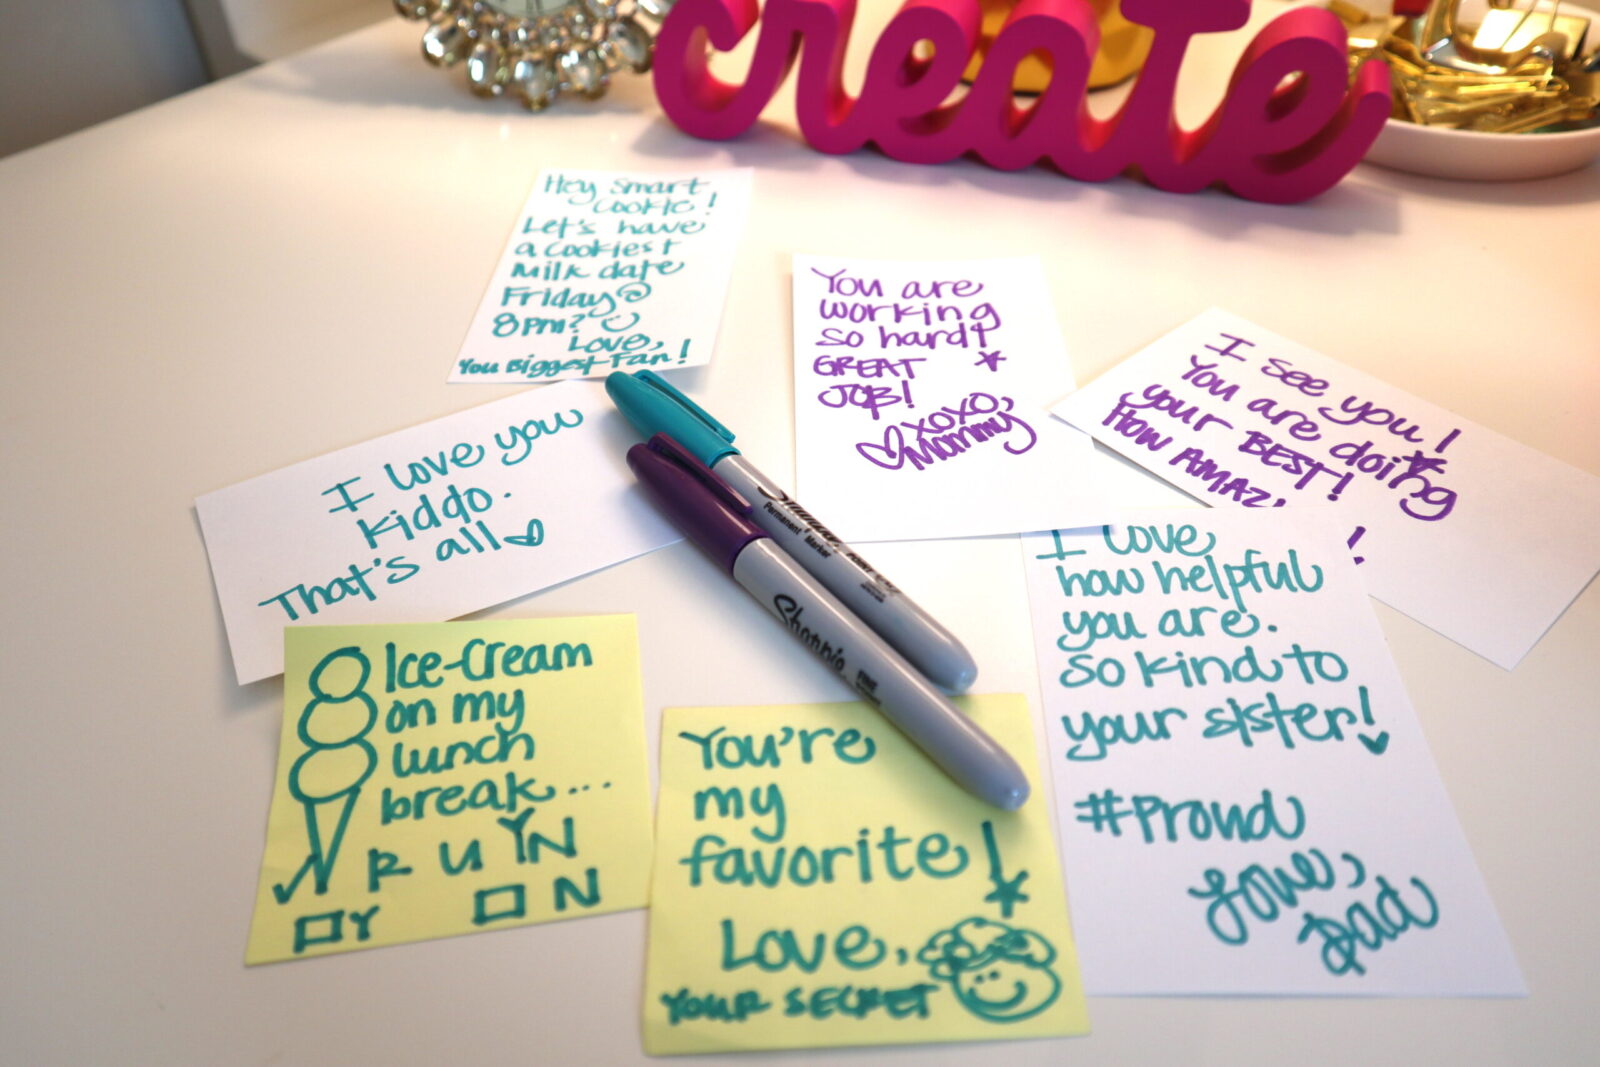 create
Hey Smart
Cookie!
Let's have
a cookiest
Milk date
Friday@
8pm?
Love,
You Biggest Fan!
You are
working
so hard!
GREAT
JOB!
XOXO,
Mommy
I see you!
You are doing
your BEST!
HOW AMAZ
!
I love you
kiddo.
That's all
Sharpie
Permanent Marker
Sharpie
FINE
I love
how helpful
you are.
So kind to
your sister!
#Proud
Love,
Dad
Ice-Cream
on my
lunch
break...
R U YN
Y N
You're
my
favorite!
Love,
YOUR SECRET